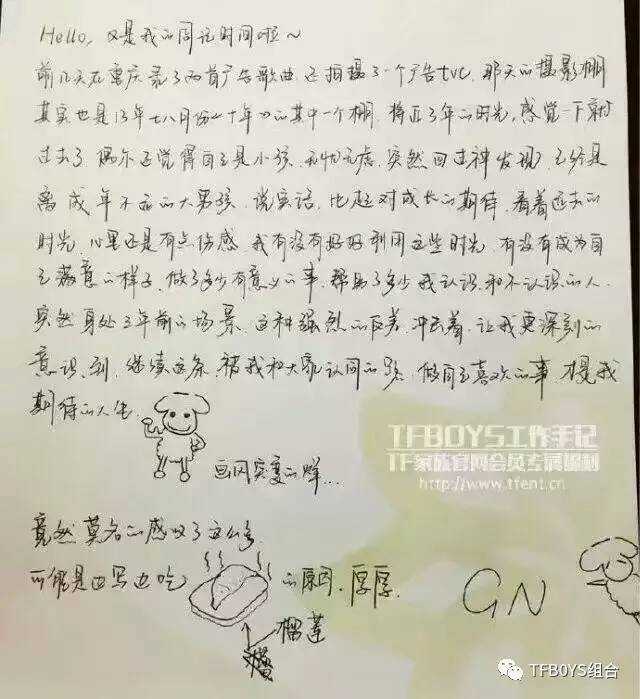 Hello, 又是我的周记时间啦~
前几天在重庆录了两首广告歌曲,还拍摄了一个广告tvc,那天的摄影棚
其实也是13年七八月份《十年》的其中一个棚,将近3年的时光,感觉一下就
过去了,偶尔还觉得自己是小孩,无忧无虑,突然回过神发现,已经是
离成年不远的大男孩,说实话,比起对成长的期待,看着逝去的
时光,心里还是有点伤感,我有没有好好利用这些时光,有没有成为自
己满意的样子,做了多少有意义的事,帮助了多少我认识和不认识的人.
突然身处3年前的场景,这种强烈的反差冲击着,让我更深刻的
意识到,继续这条被我和大家认同的路,做自己喜欢的事,才是我
期待的人生.
画风突变的咩...
竟然莫名的感叹了这么多
可能是边写边吃
的原因,厚厚.
榴莲
GN
TFBOYS工作手记
TF家族官网会员专属福利
http://www.tfent.cn
TFBOYS组合